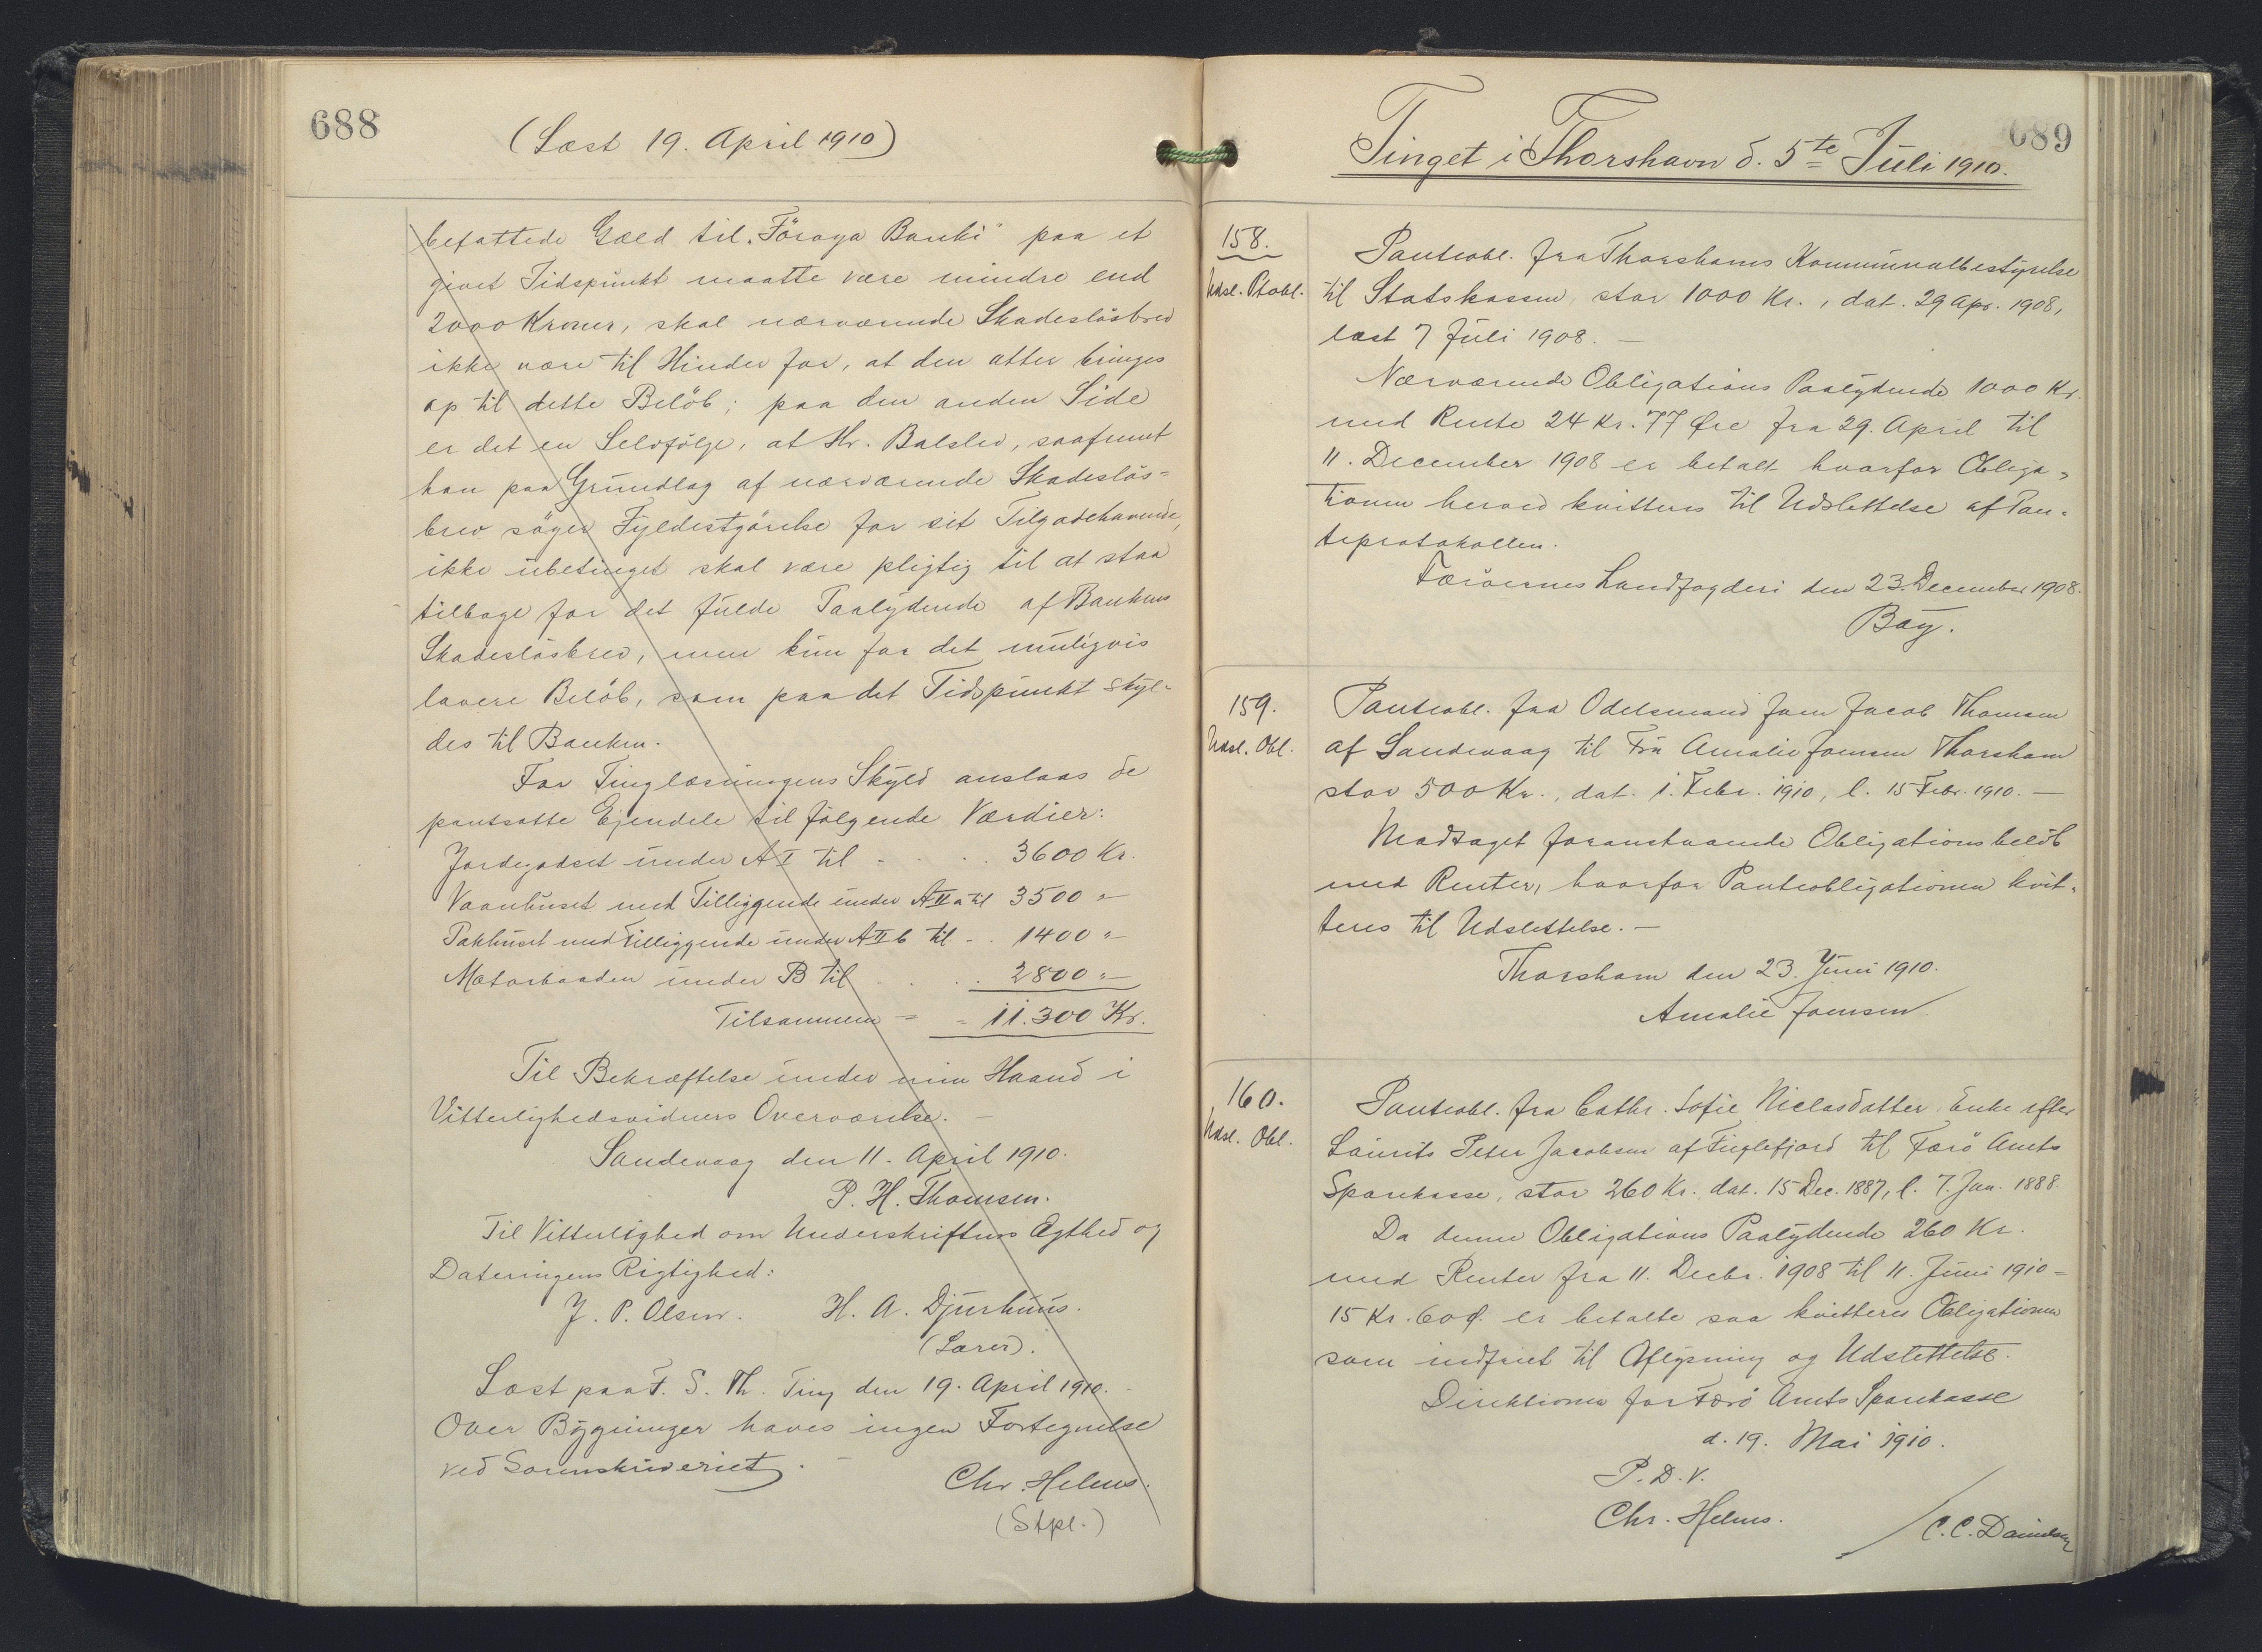 688
(Læst 19. April 1910)
befattede Gæld til "Föroya Banki" paa et
givet Tidspunkt maatte være mindre end
2000 Kroner, skal nærværende Skadesløsbrev
ikke være til Hinder for, at den atter bringes
op til dette Beløb; paa den anden Side
er det en Selvfølge, at Hr. Balslev, saafremt
han paa Grundlag af nærværende Skadesløs=
brev søger Fyldestgørelse for sit Tilgodehavende,
ikke ubetinget skal være pligtig til at staa
tilbage for det fulde Paalydende af Bankens
Skadesløsbrev, men kun for det muligvis
lavere Beløb, som paa det Tidspunkt skyl-
des til Banken.
For Tinglæsningens Skyld anslaas de
pantsatte Ejendele til følgende Værdier:
Jordegodset under A I til - . . . 3600 Kr.
Vaanhuset med Tilliggende under A II a til 3500 "-
Pakhuset med Tilliggende under A II b til - . 1400 "-
Motorbaaden under B til . . . 2800 "-
Tilsammen - - 11.300 Kr.
Til Bekræftelse under min Haand i
Vitterlighedsvidners Overværelse. -
Sandevaag den 11. April 1910.
P. H. Thomsen.
Til Vitterlighed om Underskriftens Ægthed og
Dateringens Rigtighed:
J. P. Olsen. H. A. Djurhuus.
(Lærer).
Læst paa F. S. Th. Ting den 19. April 1910. -
Over Bygninger haves ingen Fortegnelse
ved Sorenskriveriet. -
Chr. Helms.
(Stpl.)
689
Tinget i Thorshavn d. 5te Juli 1910.
158.
Udsl. Ptobl.
Panteobl. fra Thorshavns Kommunalbestyrelse
til Statskassen, stor 1000 Kr., dat. 29 Apr. 1908,
læst 7 Juli 1908. -
Nærværende Obligations Paalydende 1000 Kr.
med Rente 24 Kr. 77 Øre fra 29. April til
11. December 1908 er betalt hvorfor Obliga=
tionen herved kvitteres til Udslettelse af Pan=
teprotokollen.
Færøernes Landfogderi den 23. December 1908.
Bay.
159.
Udsl. Obl.
Panteobl. fra Odelsmand Joen Jacob Thomsen
af Sandevaag til Fru Amalie Joensen Thorshavn
stor 500 Kr., dat. 1. Febr. 1910, l. 15 Febr. 1910. -
Modtaget foranstaaende Obligationsbeløb
med Renter, hvorfor Panteobligationen kvit=
teres til Udslettelse. -
Thorshavn den 23. Juni 1910.
Amalie Joensen
160.
Udsl. Obl.
Panteobl. fra Cathr. Sofie Niclasdatter Enke efter
Laurits Peter Jacobsen af Fuglefjord til Færø Amts
Sparekasse, stor 260 Kr. dat. 15 Dec. 1887, l. 7. Jan. 1888.
Da denne Obligations Paalydende 260 Kr.
med Renter fra 11. Decbr. 1908 til 11. Juni 1910 =
15 Kr. 60 Ø. er betalte saa kvitteres Obligationen
som indfriet til Aflysning og Udslettelse.
Direktionen for Færø Amts Sparekasse
d. 19. Mai 1910.
P. D. V.
Chr. Helms. C. C. Danielsen